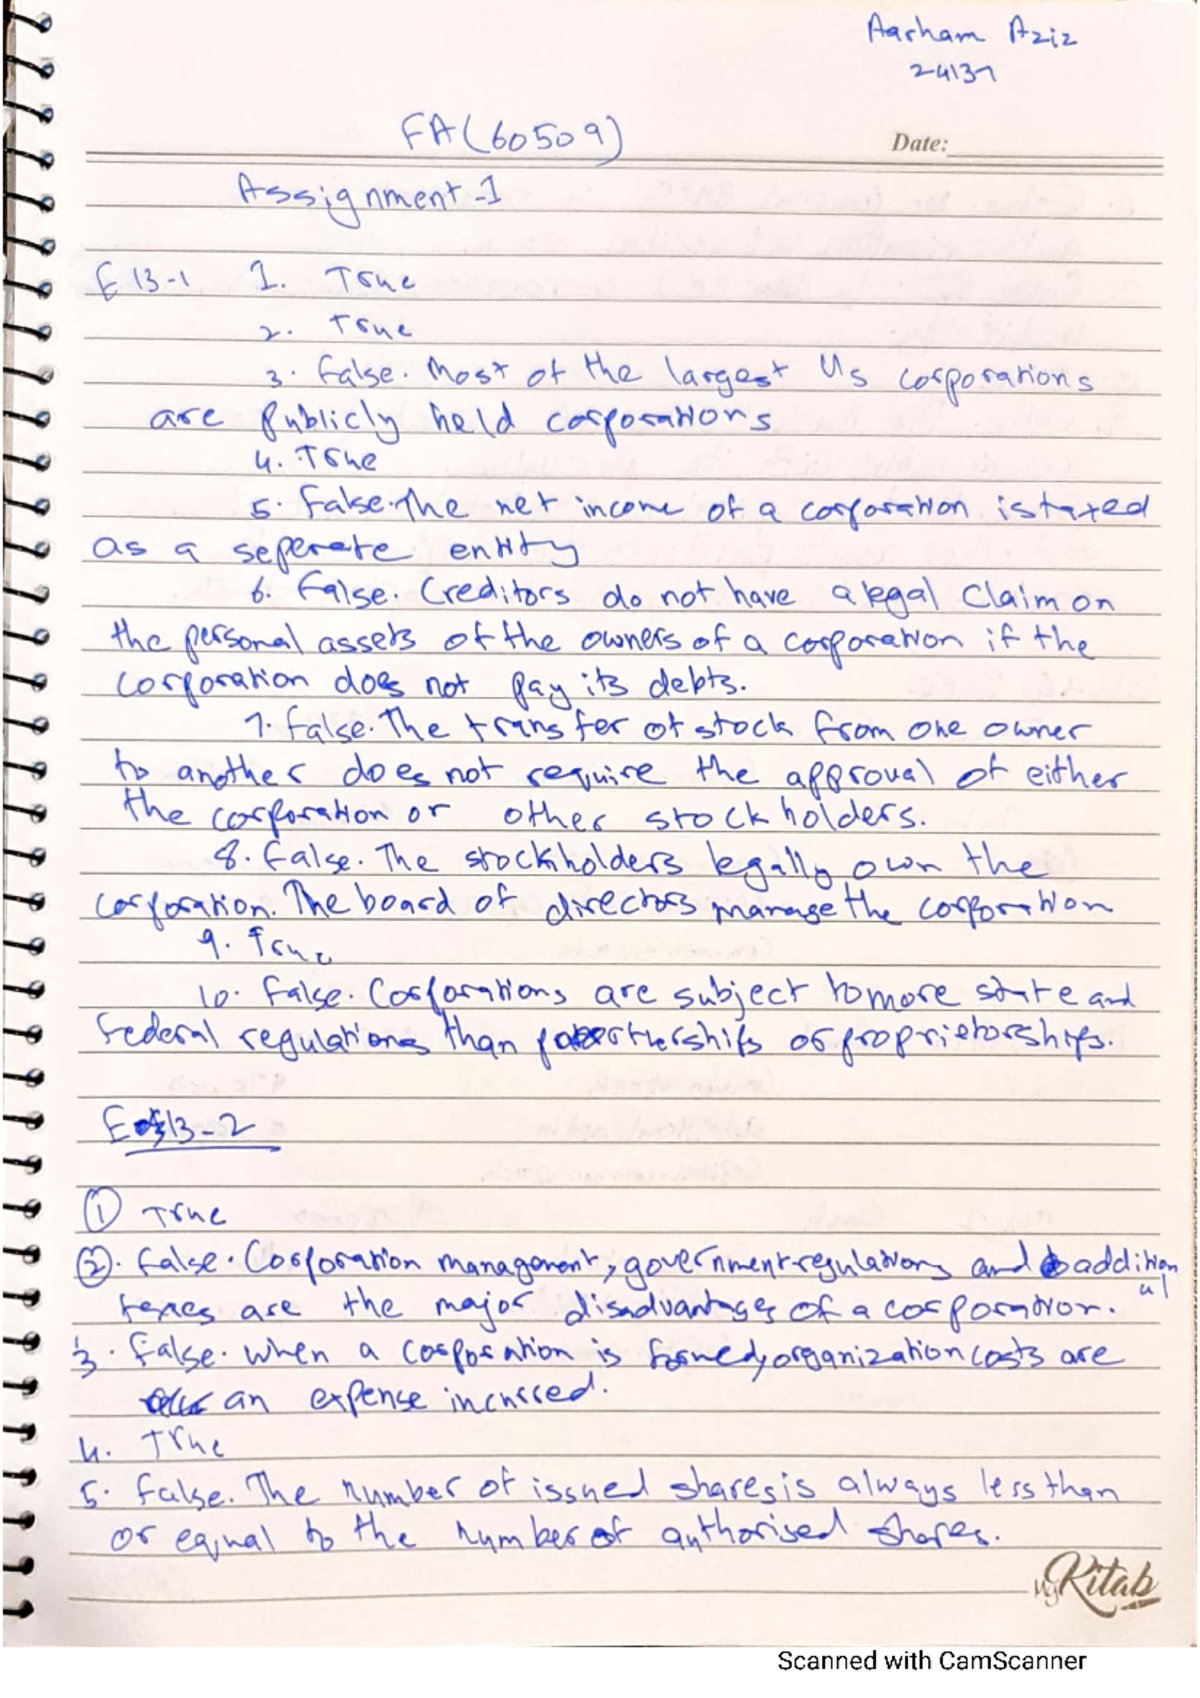 Aarham Aziz
24137
FA (60509)
Date:
Assignment-1
E 13-1 1. True
2. True
3. False. Most of the largest US corporations
are publicly held corporations
4. True
5. False. The net income of a corporation is taxed
as a seperate entity
6. False. Creditors do not have a legal claim on
the personal assets of the owners of a corporation if the
corporation does not pay its debts.
7. False. The transfer of stock from one owner
to another does not require the approval of either
the corporation or other stockholders.
8. False. The stockholders legally own the
corporation. The board of directors manage the corporation
9. True
10. False. Corporations are subject to more state and
Federal regulations than partnerships or proprietorships.
E 13-2
1 True
2. False. Corporation management, government regulations and additional
taxes are the major disadvantages of a corporation.
3. False. when a corporation is formed, organization costs are
an expense incurred.
4. True
5. False. The number of issued shares is always less than
or equal to the number of authorised shares.
My Kitab
Scanned with CamScanner